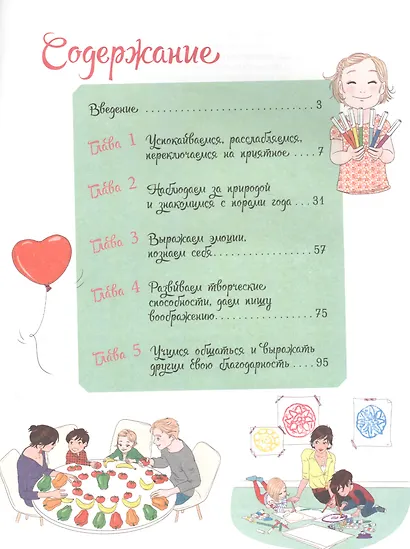 Содержание
Введение ........................ 3
Глава 1 Успокаиваемся, расслабляемся,
переключаемся на приятное .... 7
Глава 2 Наблюдаем за природой
и знакомимся с порами года ... 31
Глава 3 Выражаем эмоции,
познаем себя.................... 57
Глава 4 Развиваем творческие
способности, даем пищу
воображению.................... 75
Глава 5 Учимся общаться и выражать
другим свою благодарность .... 95